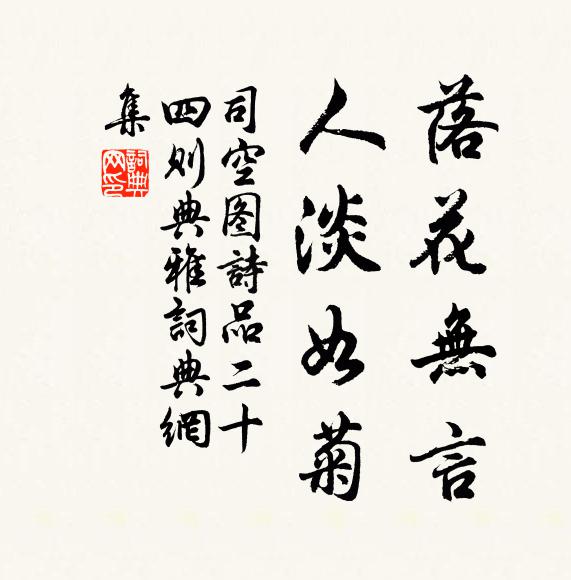 落花無言
人淡如菊
司空图詩品二十
四则典雅詞典網
集
詞典
网印